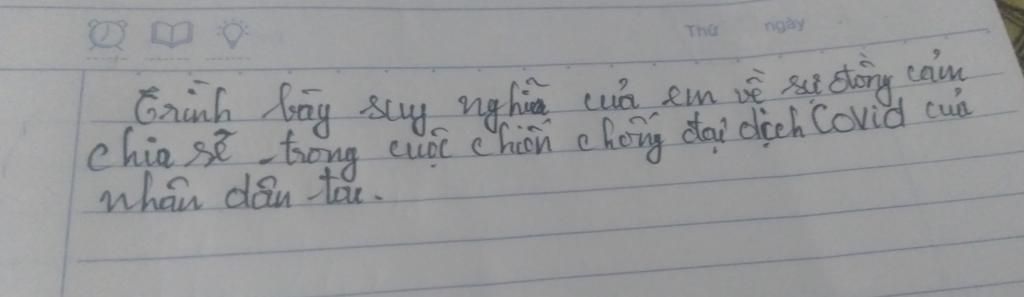 Thứ ngày
Trình bày suy nghĩa của em về sự đồng cảm
chia sẽ trong cuộc chiến chống đại dịch Covid của
nhân dân ta.